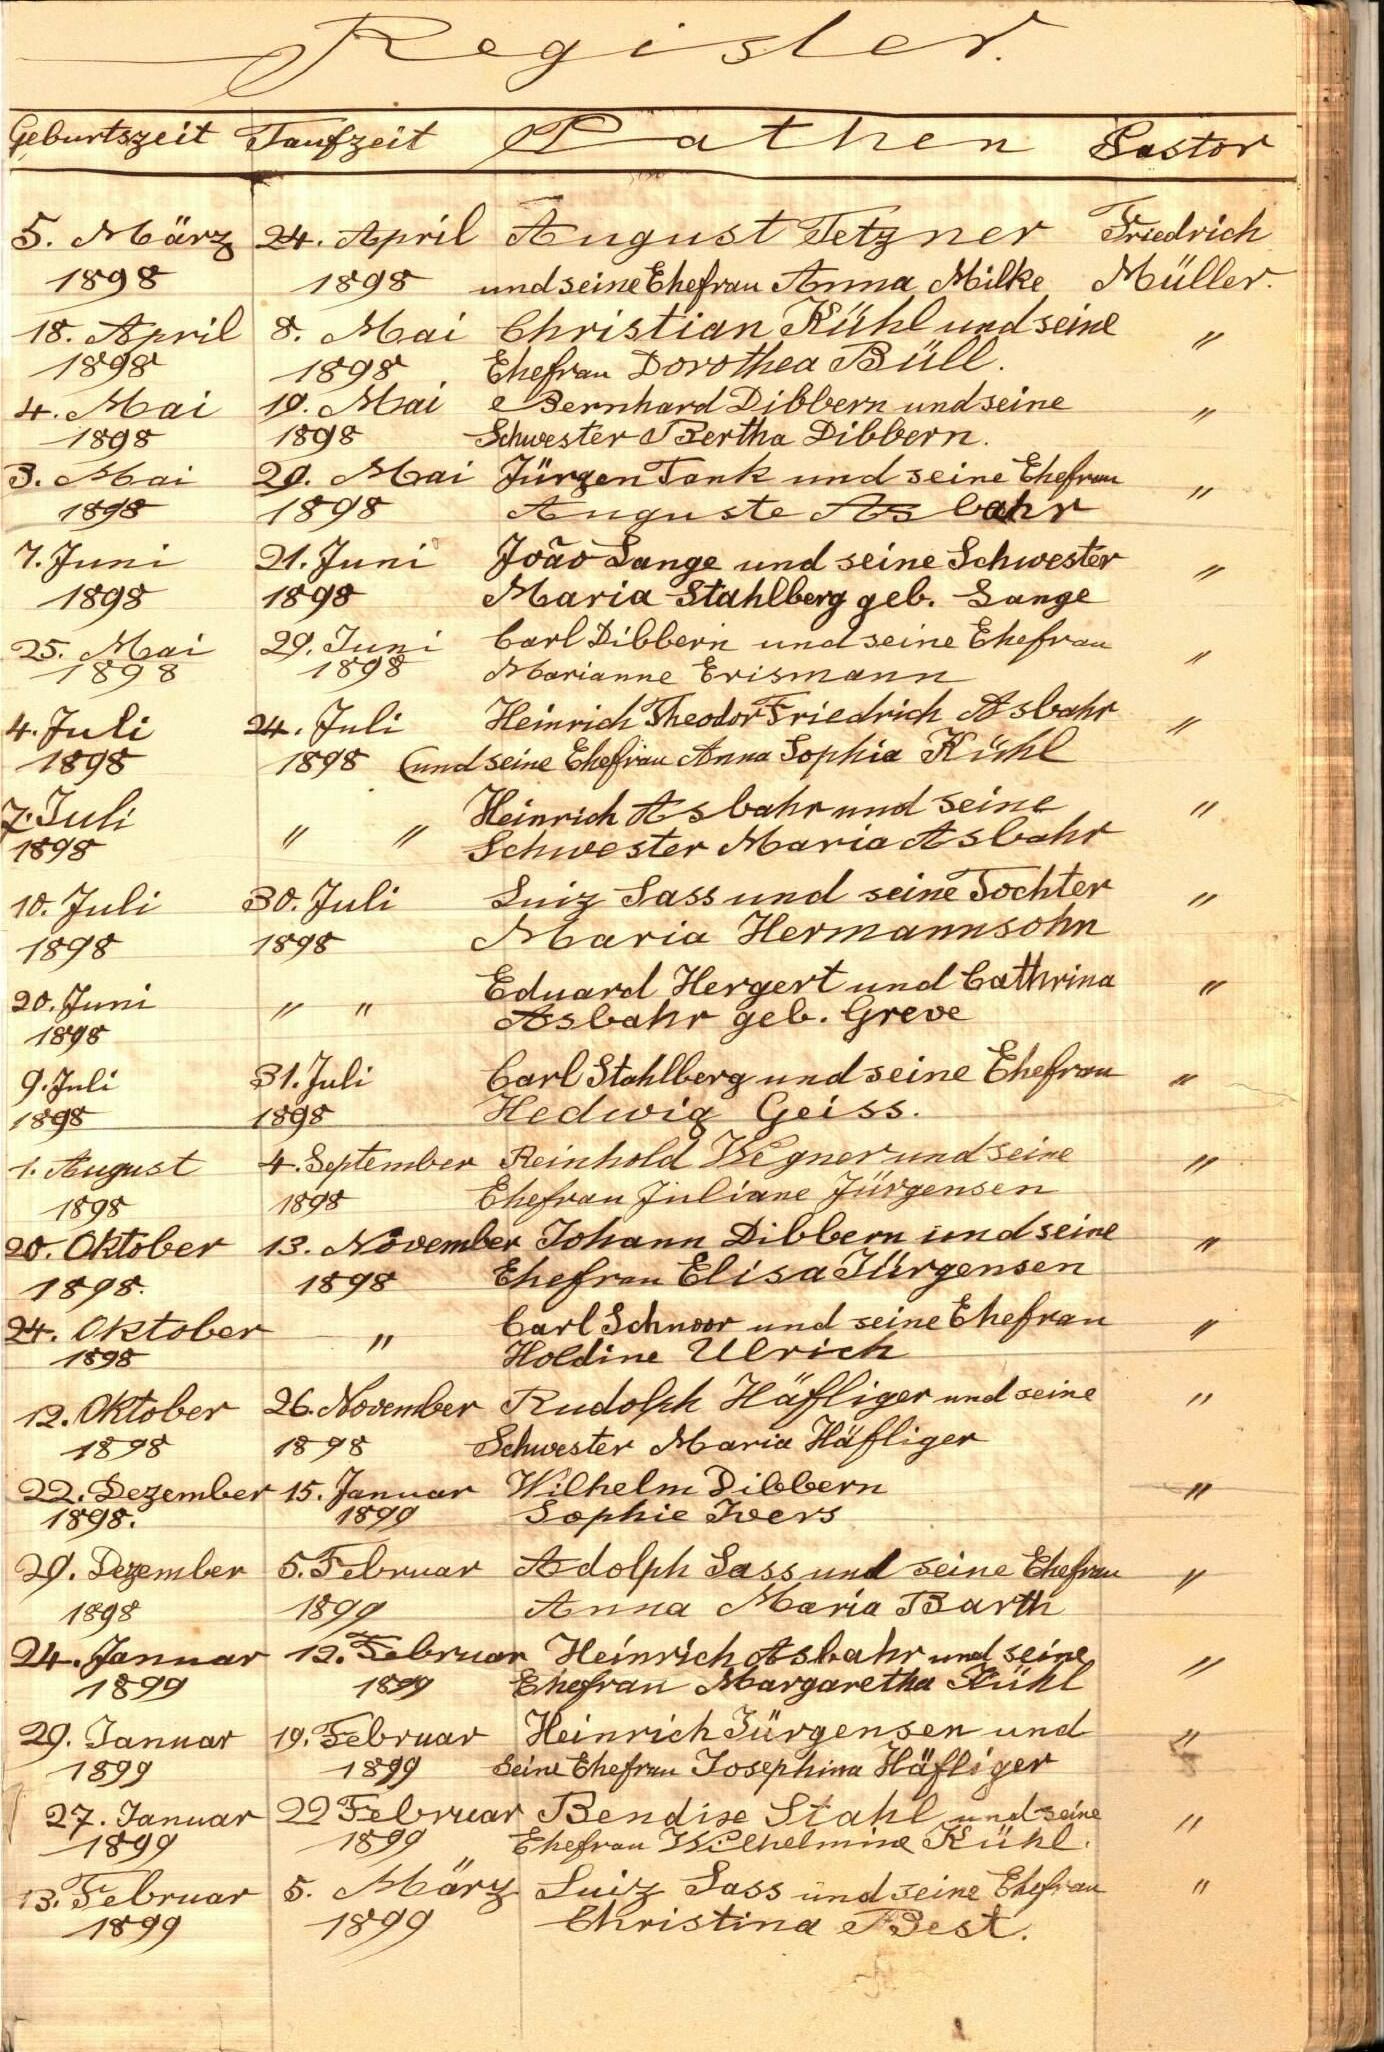 Register.
Geburtszeit Taufzeit Pathen Pastor
5. März 24. April August Tetzner Friedrich
1898 1898 und seine Ehefrau Anna Milke Müller.
18. April 8. Mai Christian Kühl und seine "
1898 1898 Ehefrau Dorothea Büll.
4. Mai 19. Mai Bernhard Dibbern und seine "
1898 1898 Schwester Bertha Dibbern.
3. Mai 29. Mai Jürgen Tank und seine Ehefrau "
1898 1898 Auguste Asbahr
7. Juni 21. Juni João Lange und seine Schwester "
1898 1898 Maria Stahlberg geb. Lange
25. Mai 29. Juni Carl Dibbern und seine Ehefrau "
1898 1898 Marianne Erismann
4. Juli 24. Juli Heinrich Theodor Friedrich Asbahr "
1898 1898 (und seine Ehefrau Anna Sophia Kühl
7. Juli " " Heinrich Asbahr und seine "
1898 Schwester Maria Asbahr
10. Juli 30. Juli Luiz Sass und seine Tochter "
1898 1898 Maria Hermannsohn
20. Juni " " Eduard Hergert und Cathrina "
1898 Asbahr geb. Greve
9. Juli 31. Juli Carl Stahlberg und seine Ehefrau "
1898 1898 Hedwig Geiss.
1. August 4. September Reinhold Wegner und seine "
1898 1898 Ehefrau Juliane Jürgensen
20. Oktober 13. November Johann Dibbern und seine "
1898. 1898 Ehefrau Elisa Jürgensen
24. Oktober " Carl Schnoor und seine Ehefrau "
1898 Holdine Ulrich
12. Oktober 26. November Rudolph Häfliger und seine "
1898 1898 Schwester Maria Häfliger
22. Dezember 15. Januar Wilhelm Dibbern "
1898. 1899 Sophie Ivers
29. Dezember 5. Februar Adolph Sass und seine Ehefrau "
1898 1899 Anna Maria Barth
24. Januar 12. Februar Heinrich Asbahr und seine "
1899 1899 Ehefrau Margaretha Kühl
29. Januar 19. Februar Heinrich Jürgensen und "
1899 1899 seine Ehefrau Josephina Häfliger
27. Januar 22 Februar Bendix Stahl und seine "
1899 1899 Ehefrau Wilhelmine Kühl.
13. Februar 5. März Luiz Sass und seine Ehefrau "
1899 1899 Christina Best.